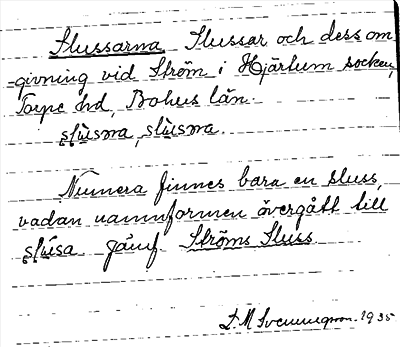 Slussarna Slussar och dess om
-givning vid Ström i Hjärtum socken,
Torpe hd, Bohus län.
slùsɷa, slùsɷa.
Numera finnes bara en sluss,
vadan namnformen övergått till
slúsa jämf. Ströms Sluss.
D. M Svenningson. 1935